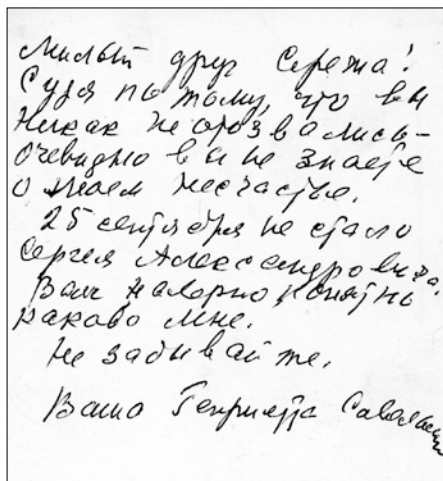 Милый друг Сережа!
Судя по тому, что вы
никак не отозвались –
очевидно вы не знаете
о моем несчастье.
25 сентября не стало
Сергея Александровича.
Вам наверно понятно
каково мне.
Не забывайте.
Ваша Генриетта